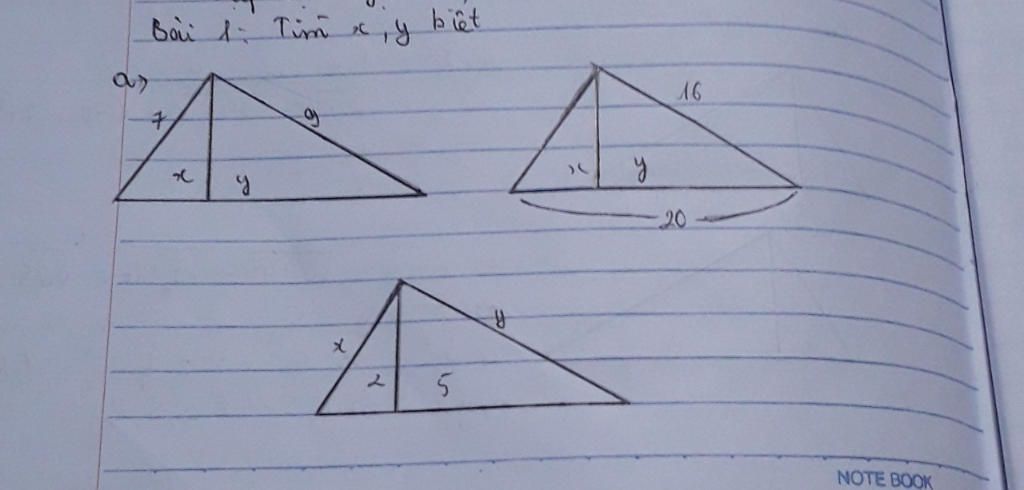 Bài 1: Tìm x, y biết
a>
7 9
x y
16
x y
20
x y
2 5
NOTE BOOK